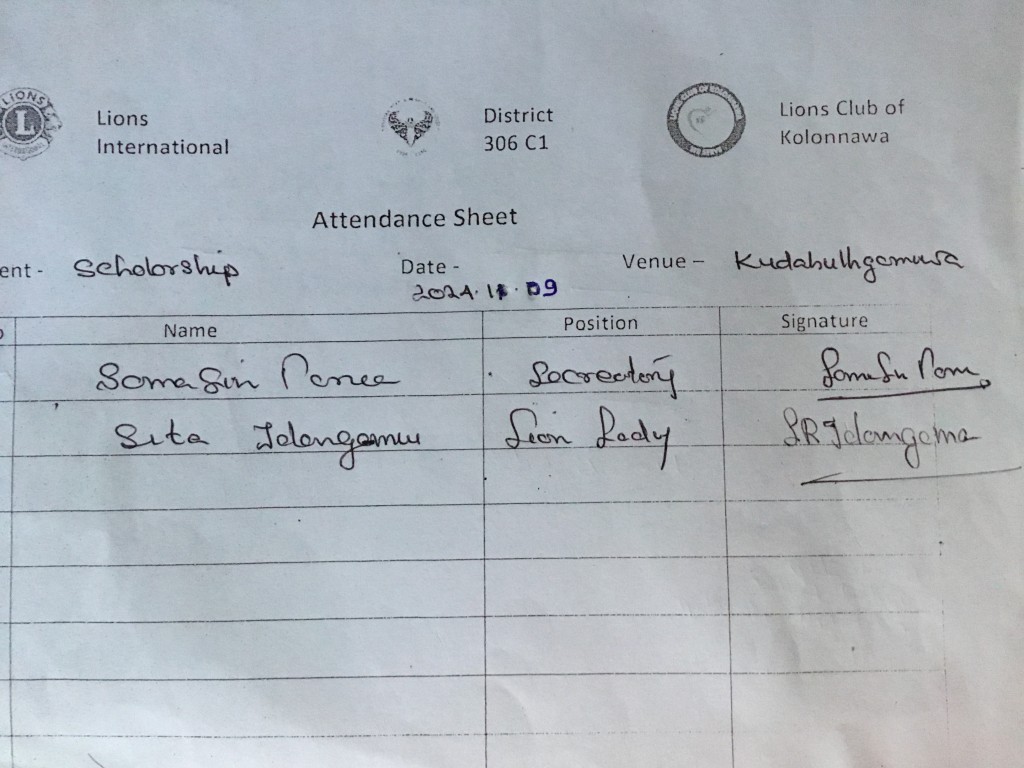 LIONS
L
Lions International
District 306 C1
Lions Club of Kolonnawa
Attendance Sheet
ent - Scholorship Date - 2024.11.09 Venue – Kudabuthgamuwa
Name Position Signature
Somasiri Secreatory
Sita Idangamu Lion Lady SR Idamgama